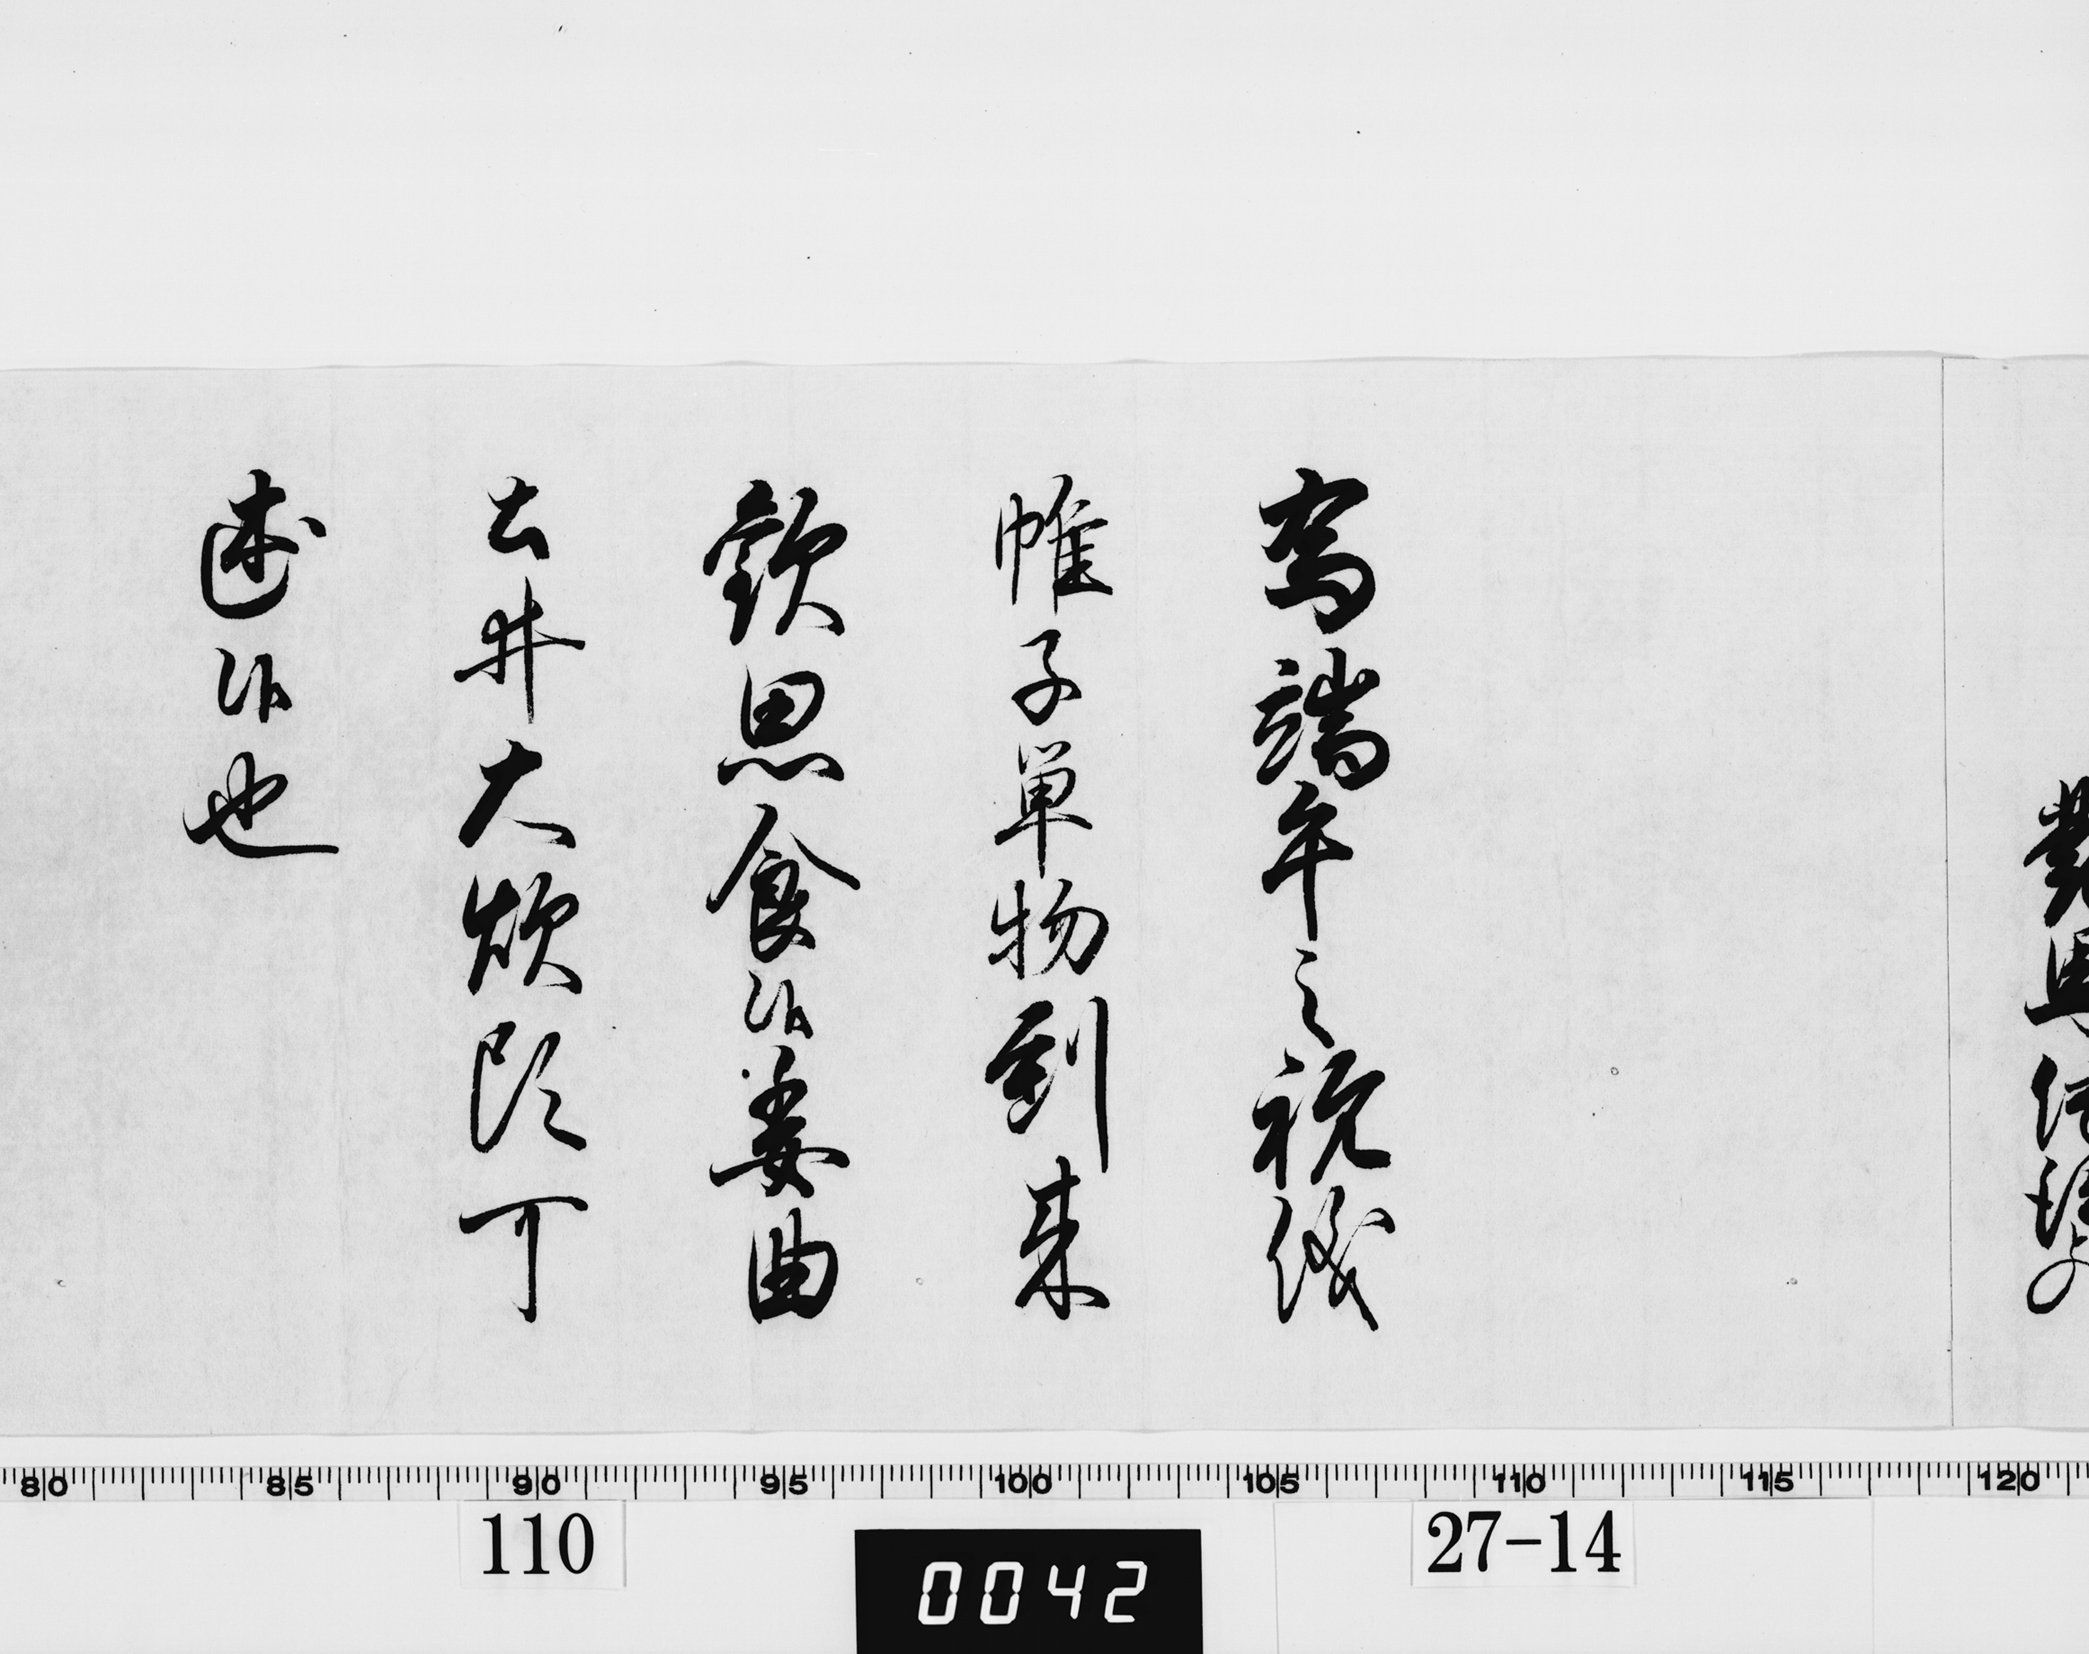 為端午之祝儀
帷子単物到来
歓思食候委曲
土井大炊頭可
述候也
80 85 90 95 100 105 110 115 120
110
0042
27-14